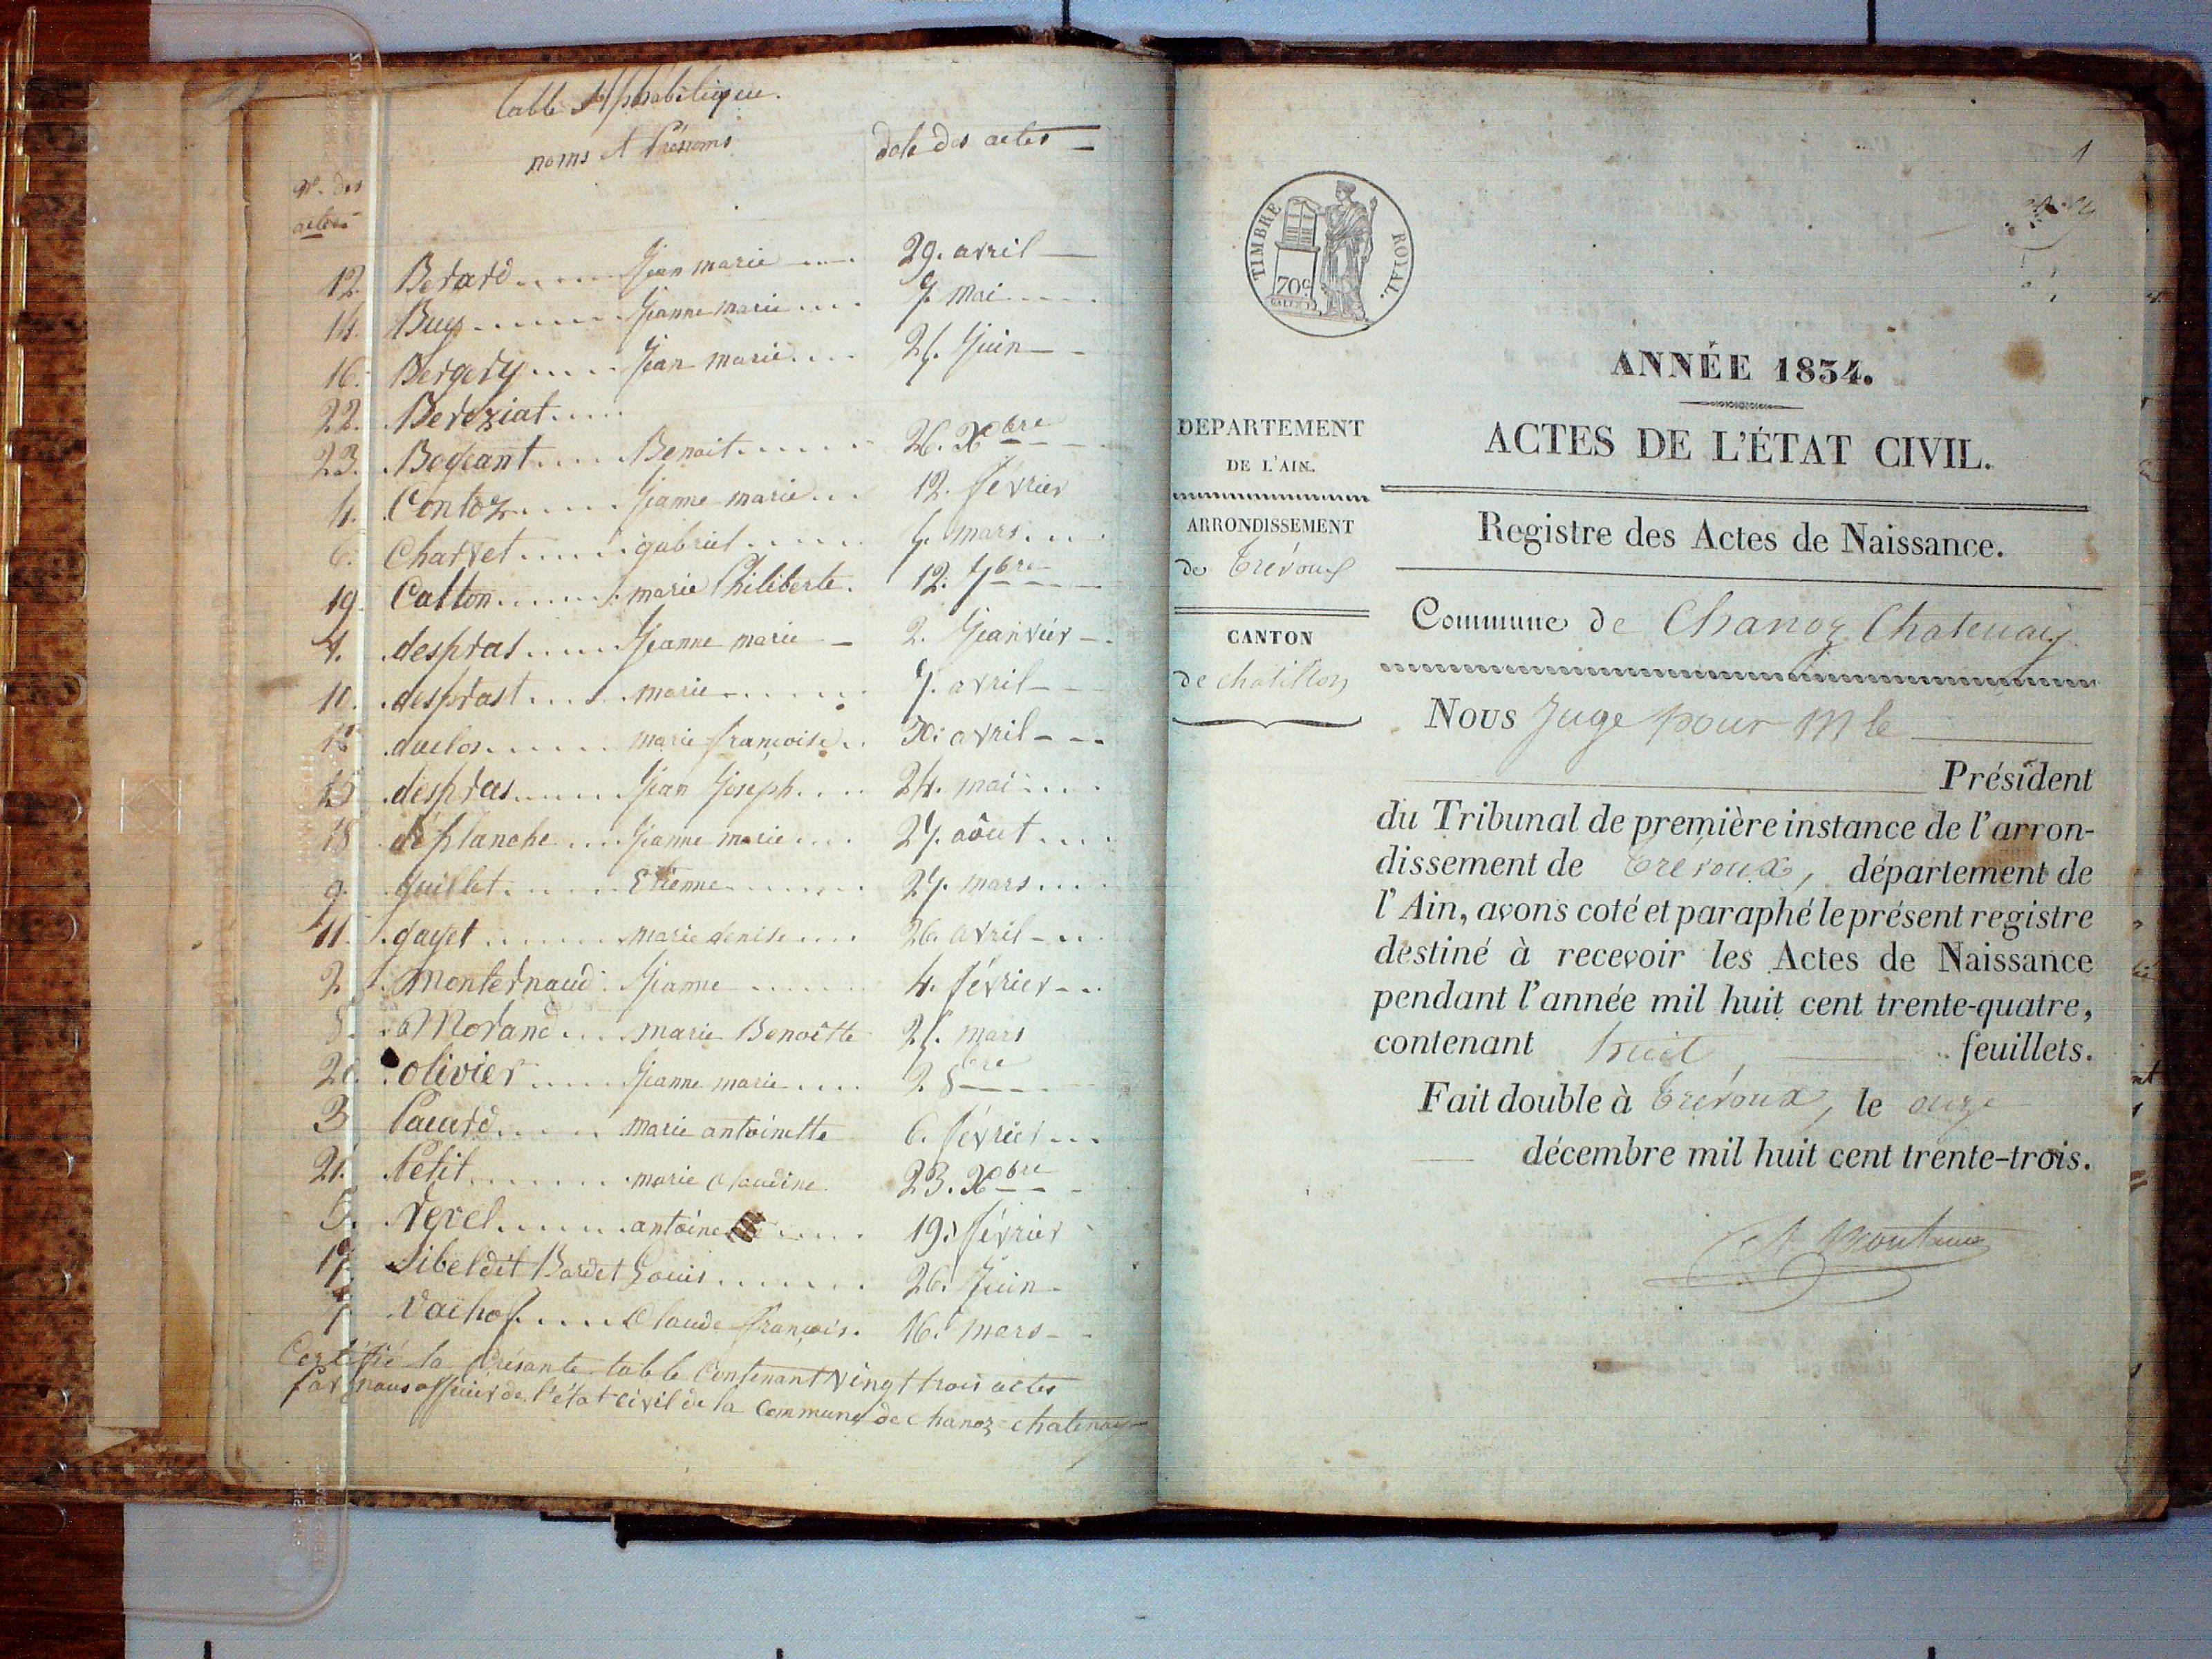 table Alphabétique.
noms et Prénoms
date des actes
No. des
actes
12. Berard Jean marie 29. avril
14. Buy Jeanne marie 7. mai
16. Bergery Jean marie 21. Juin
22. Bereziat
23. Bogeant Benoit 26. Xbre
4. Contoz Jeanne marie 12. février
6. Charvet gabriel mars
19. Catton marie Philiberte. 12. 7bre
1. despras Jeanne marie 2. Jeanvier
10. desprast marie 7. avril
13 duclos marie françoise 30. avril
15 despras Jean Joseph 24. mai
18 déplanche Jeanne marie 27. août
9. guillet Etienne 27. mars
11. gayet marie denise 26. avril
2. Monternaud Jeanne 4. février
8. Morand marie Benoitte 21. mars
20. olivier Jeanne marie 2. 8bre
3 Pacard marie antoinette 6. février
21. Petit marie Claudine 23. Xbre
5. revel antoine 19. février
17. Sibel dit Bardet Louis 26. Juin
7. Claude françois. 16. mars
Certifié la présante table Contenant vingt trois actes
par nous officier de l'état civil de la Commune de chanoz=chatenay
1
TIMBRE ROYAL.
70c
ANNÉE 1834.
DÉPARTEMENT
DE L'AIN.
ACTES DE L'ÉTAT CIVIL.
ARRONDISSEMENT
de Trévoux
Registre des Actes de Naissance.
CANTON
de chatillon
Commune de Chanoz Chatenay
Nous Juge pour M le
Président
du Tribunal de première instance de l'arron-
dissement de Trévoux, département de
l'Ain, avons coté et paraphé le présent registre
destiné à recevoir les Actes de Naissance
pendant l'année mil huit cent trente-quatre,
contenant huit feuillets.
Fait double à Trévoux, le onze
décembre mil huit cent trente-trois.